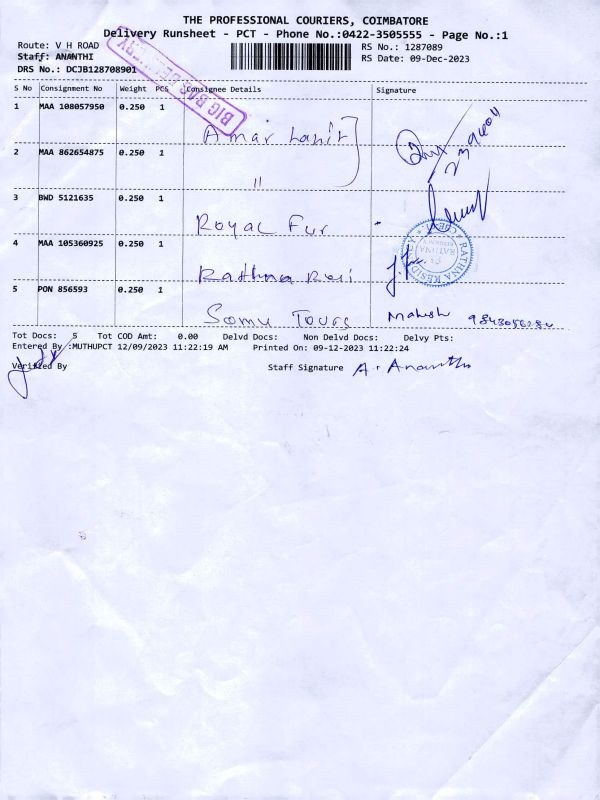 THE PROFESSIONAL COURIERS, COIMBATORE
Delivery Runsheet - PCT - Phone No.:0422-3505555 - Page No.:1
Route: V H ROAD
RS No.: 1287089
Staff: ANANTHI
RS Date: 09-Dec-2023
DRS No.: DCJB128708901
BIG BAG DELIVERY
S No Consignment No Weight PCS Consignee Details Signature
1 MAA 108057950 0.250 1
Amar
2 MAA 862654875 0.250 1
"
3 BWD 5121635 0.250 1
Royal Fur
4 MAA 105360925 0.250 1
Rathna Resi
5 PON 856593 0.250 1
Somu Tours Mahesh
Tot Docs: 5 Tot COD Amt: 0.00 Delvd Docs: Non Delvd Docs: Delvy Pts:
Entered By :MUTHUPCT 12/09/2023 11:22:19 AM Printed On: 09-12-2023 11:22:24
Verified By Staff Signature A. Ananthi